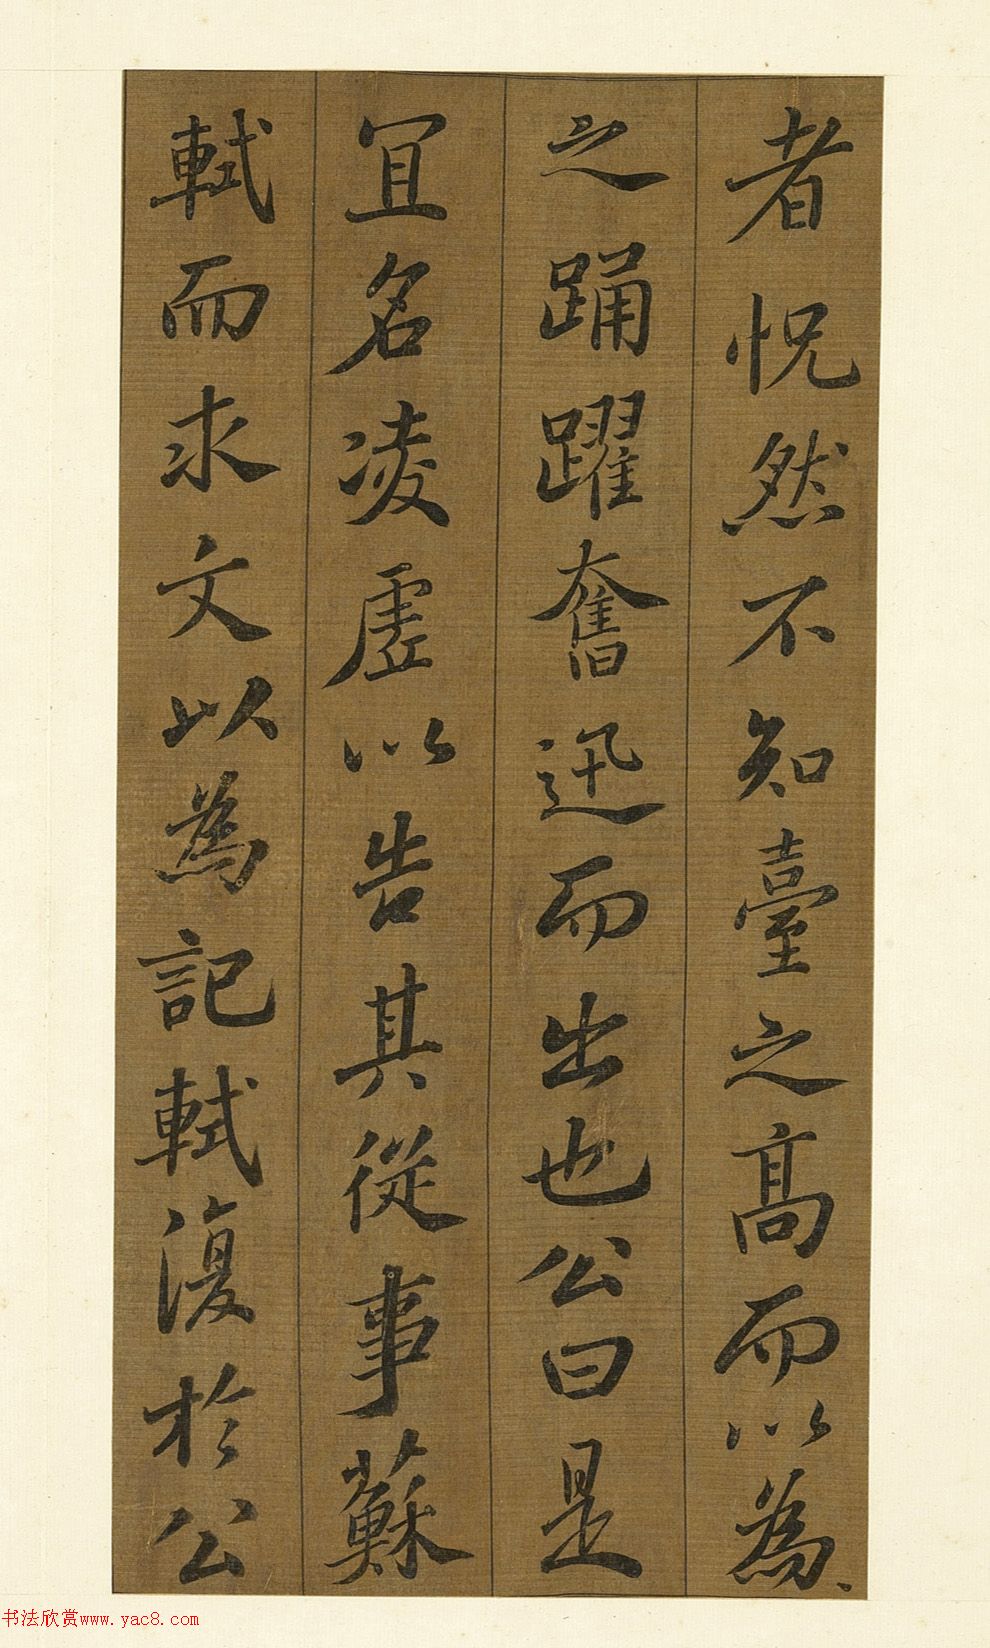 者怳然不知臺之髙而以為
之踊躍奮迅而出也公曰是
宜名凌虛以告其從事蘇
軾而求文以為記軾復於公
书法欣赏www.yac8.com